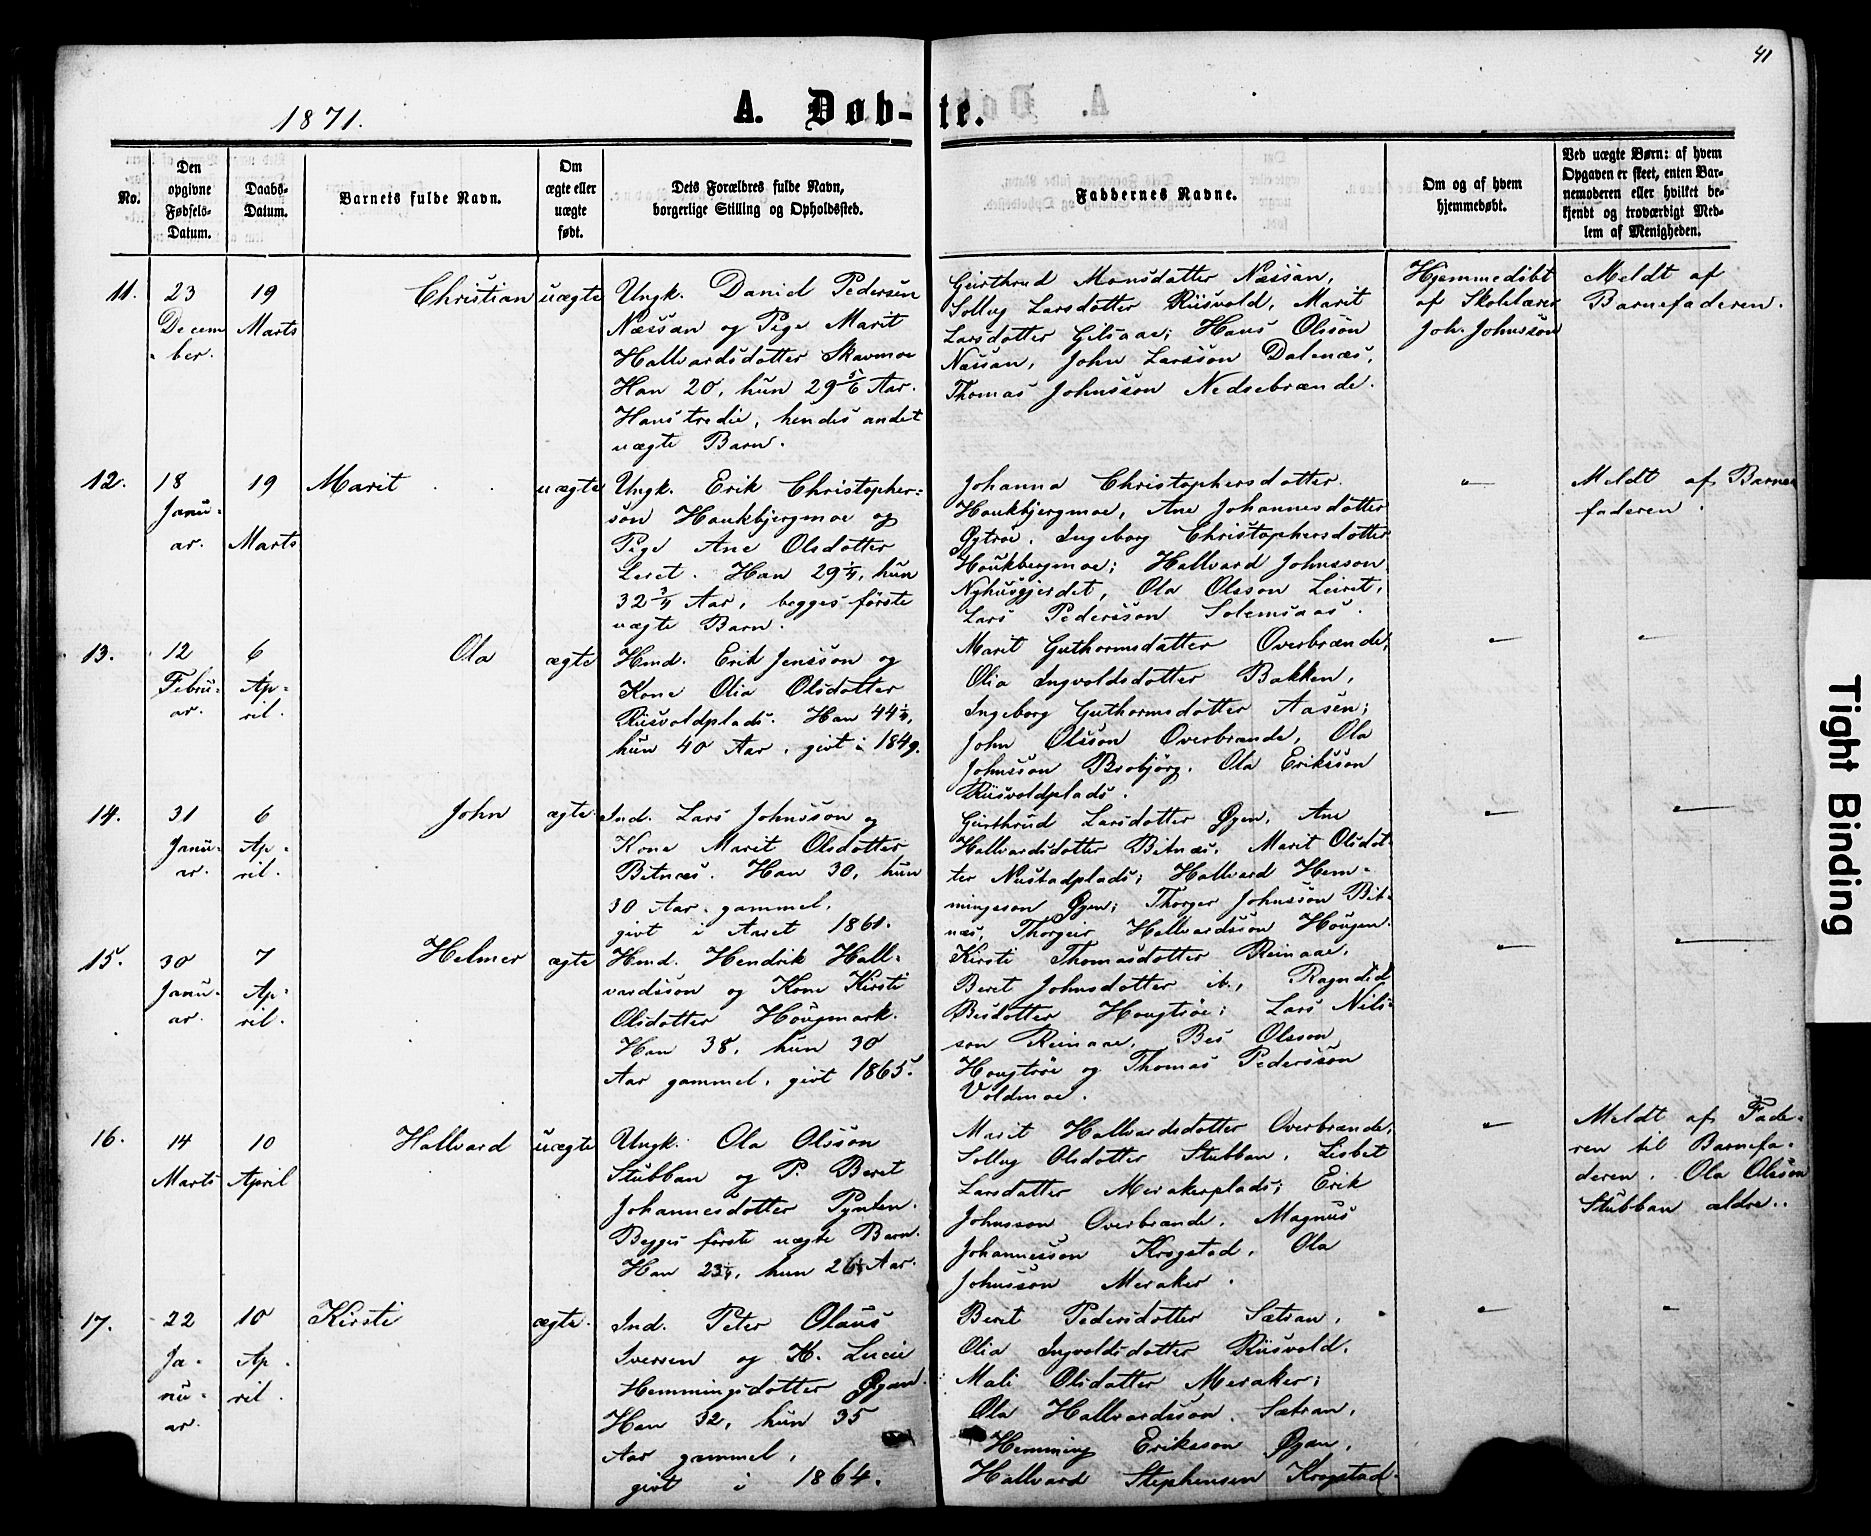 41
1871.
A. Døb-te.
No.
Den opgivne Fødsels-Datum.
Daabs-Datum.
Barnets fulde Navn.
Om ægte eller uægte født.
Dets Forældres fulde Navn, borgerlige Stilling og Opholdssted.
Faddernes Navne.
Om og af hvem hjemmedøbt.
Ved uægte Børn: af hvem Opgaven er skeet, enten Barnemoderen eller hvilket bekjendt og troværdigt Medlem af Menigheden.
11.
23
Decem
ber.
19
Marts
Christian
uægte
Ungk. Daniel Pedersen
Næssan og Pige Marit
Hallvardsdatter Skavmoe
Han 20, hun 29 5/6 Aar.
Hans tredie, hendes andet
uægte Barn.
Giærthrud Monsdatter Næssan,
Sollug Larsdotter Rusvold, Marit
Larsdotter Gilsaae; Hans Olsson
Næssan, John Larsson Dalenæs,
Thomas Johnsson Nedsebrænde.
Hjemmedöbt
af Skolelærer
Joh. Johnsson
Meldt af
Barnefaderen.
12.
18
Janu-
ar.
19
Marts
Marit
uægte
Ungk. Erik Christopher=
son Houkbjergmoe og
Pige Ane Olsdotter
Leret. Han 29 1/4, hun
32 3/4 Aar, begges første
uægte Barn.
Johanna Christophersdotter
Houkbjergmoe, Ane Johannesdotter
Gytrøe, Ingeborg Christophersdotter
Houkbergmoe; Hallvard Johnsson
Nyhusgjerdet, Ola Olsson Leiret,
Lars Pedersson Solemsaas.
Meldt af Barne
faderen.
13.
12
Febru-
ar.
6
Ap-
ril.
Ola
ægte
Hmd. Erik Jensson og
Kone Olia Olsdotter
Rusvoldplads. Han 44 1/4,
hun 40 Aar, givt i 1849.
Marit Guthormsdatter Overbrænde,
Olia Ingvoldsdotter Bakken,
Ingeborg Guthormsdotter Aasen;
John Olsson Overbrænde, Ola
Johnsson Brobjörg, Ola Eriksson
Rusvoldplads.
14.
31
Janu-
ar.
6
Ap-
ril.
John
ægte.
Ind. Lars Johnsson og
Kone Marit Olsdotter
Bitnæs. Han 30, hun
30 Aar gammel,
givt i Aaret 1861.
Giærthrud Larsdotter Øyen, Ane
Hallvardsdotter Bitnæs, Marit Olsdot-
ter Nustadplads; Hallvard Hem-
mingsson Øyen; Thorger Johnsson Bit-
næs, Thorgeir Hallvardsson Hougen.
15.
30
Janu-
ar.
7
Ap-
ril.
Helmer
ægte
Hmd. Hendrik Hall-
vardsson og Kone Kirsti
Olsdotter Hougmark.
Han 38, hun 30
Aar gammel, givt 1865.
Kirsti Thomasdotter Reinaae,
Beret Johnsdotter ib., Ragndid
Besdotter Hougtröe; Lars Nils-
son Reinaae, Bes Olsson
Hougtröe og Thomas Pedersson
Voldmoe.
16.
14
Marts
10
April
Hallvard
uægte
Ungk. Ola Olsson
Stubban og P. Beret
Johannesdotter Pynten.
Begges første uægte Barn.
Han 23 1/4, hun 26 1/4 Aar.
Marit Hallvardsdotter Overbrænde,
Sollug Olsdotter Stubban, Lisbet
Larsdatter Merakerplads; Erik
Johnsson Overbrænde, Magnus
Johannesson Krogstad, Ola
Johnsson Meraker.
Meldt af Fade-
ren til Barnefa-
deren, Ola Olsson
Stubban ældre.
17.
22
Ja-
nu-
ar.
10
Ap-
ril.
Kirsti
ægte.
Ind. Peter Olaus
Iversen og K. Lucie
Hemmingsdotter Øyan.
Han 32, hun 35
Aar gammel,
givt i 1864.
Beret Pedersdotter Sætran,
Olia Ingvoldsdotter Rusvold,
Mali Olsdatter Meraker;
Ola Hallvardsson Sætran,
Hemming Eriksson Øyan,
Hallvard Stephensen Krogstad.
Tight Binding